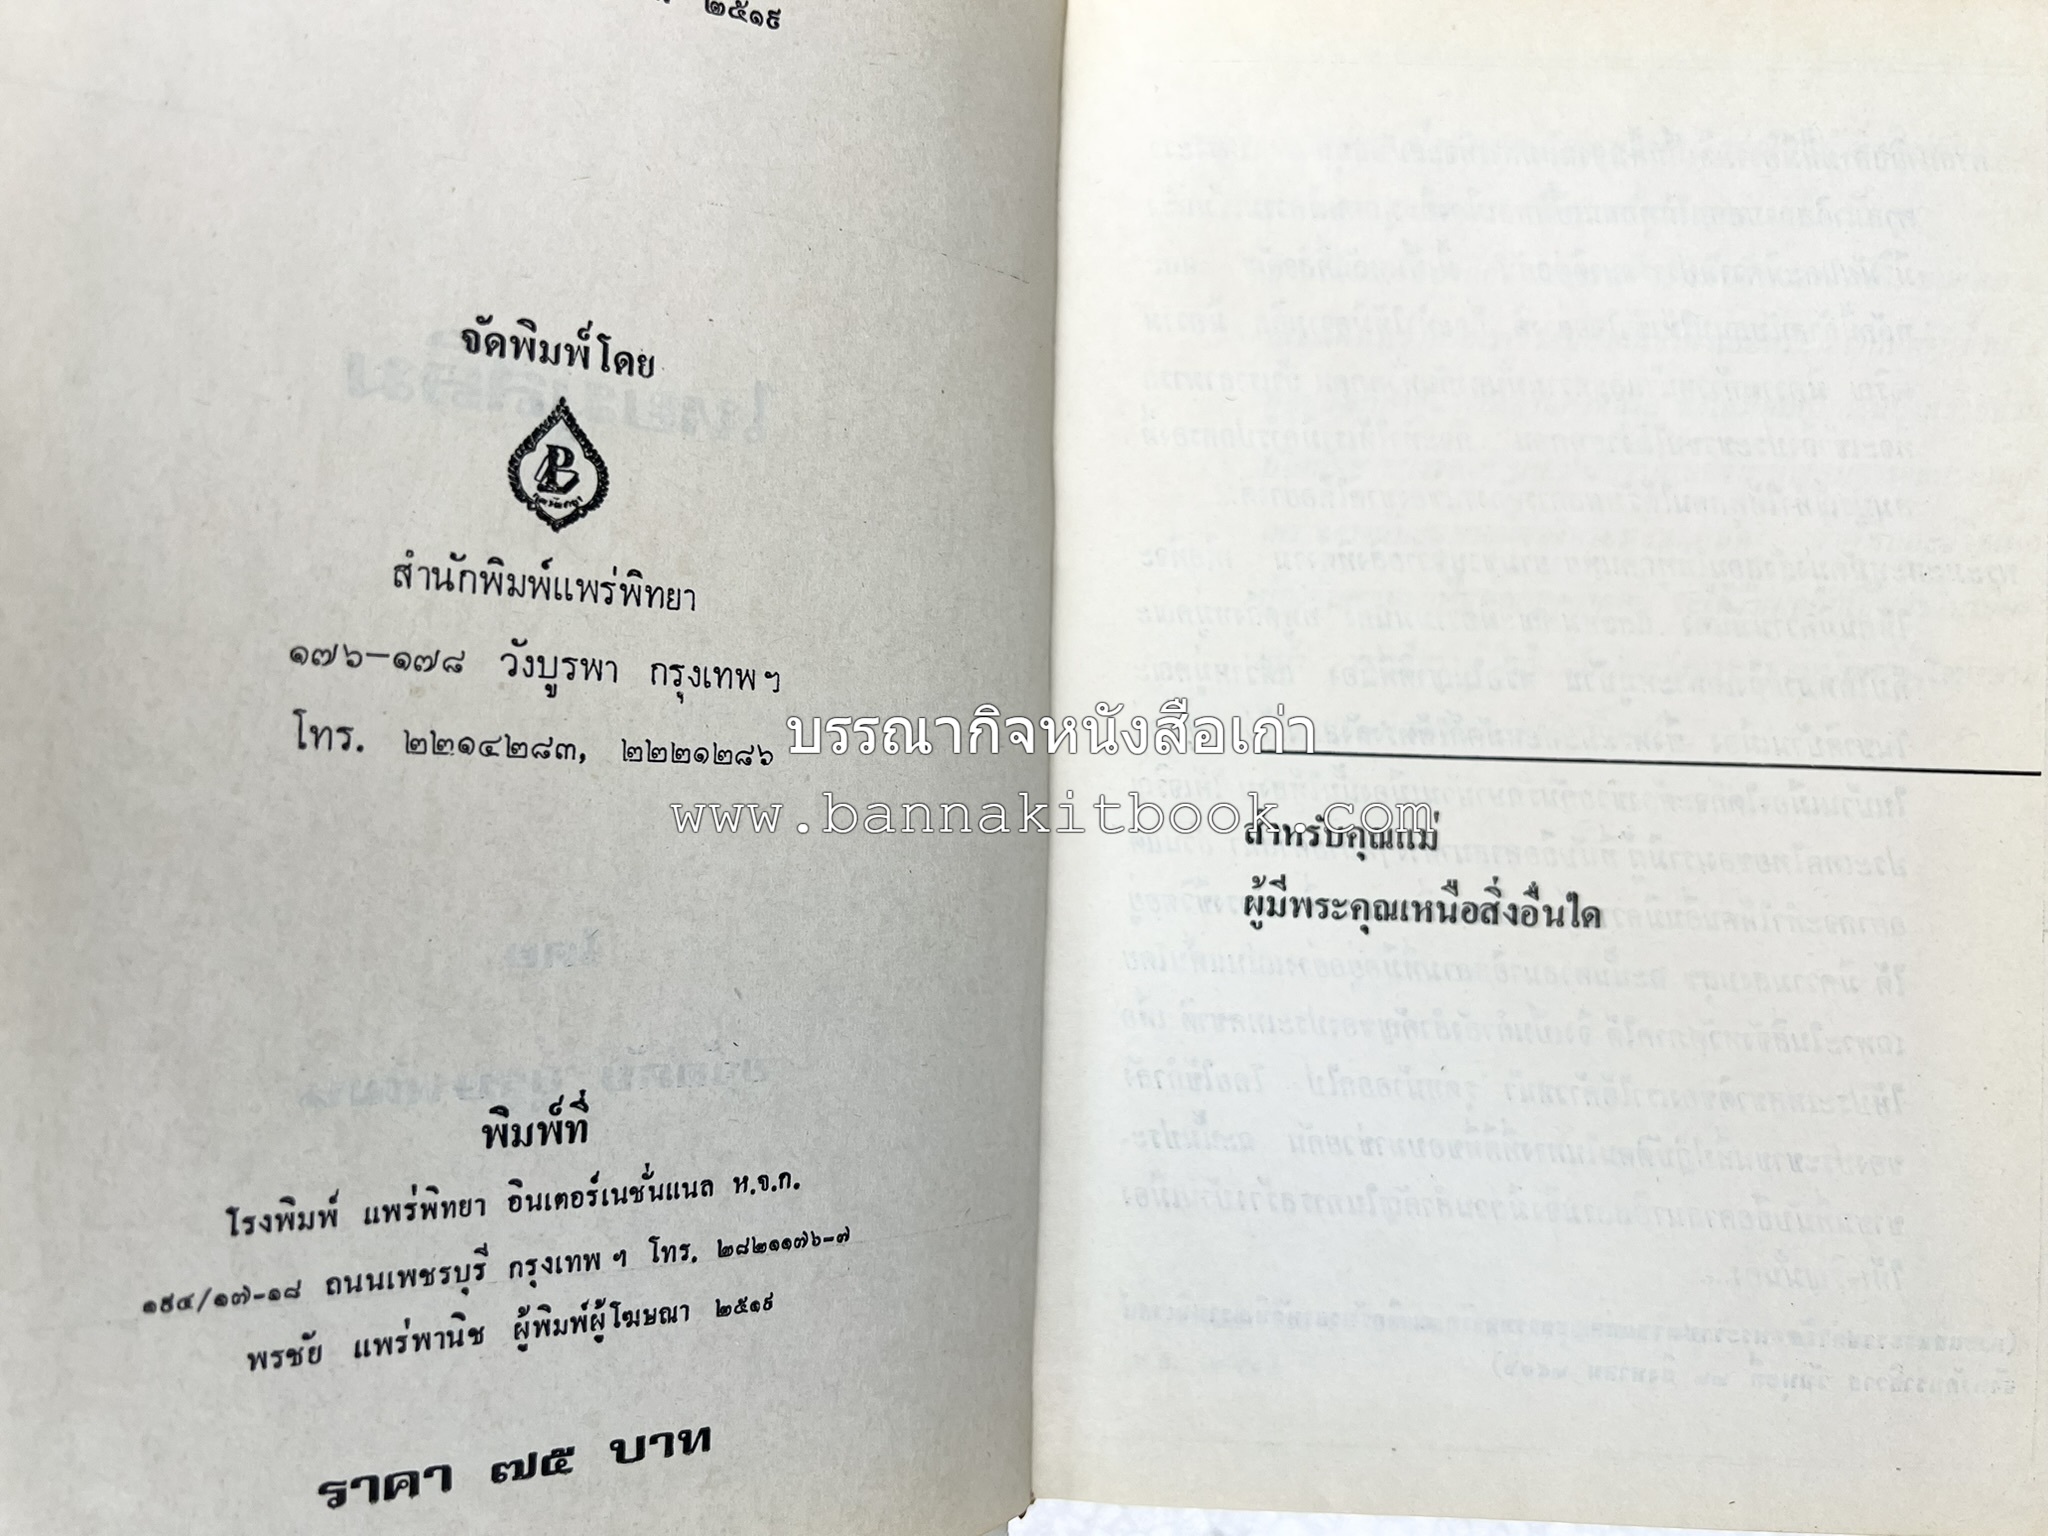 ๒๕๑๙
จัดพิมพ์โดย
สำนักพิมพ์แพร่พิทยา
๑๗๖-๑๗๘ วังบูรพา กรุงเทพฯ
โทร. ๒๒๑๔๒๘๓, ๒๒๒๑๒๘๖
พิมพ์ที่
โรงพิมพ์ แพร่พิทยา อินเตอร์เนชั่นแนล ห.จ.ก.
๑๙๔/๑๗-๑๘ ถนนเพชรบุรี กรุงเทพฯ โทร. ๒๘๒๑๑๗๖-๗
พรชัย แพร่พานิช ผู้พิมพ์ผู้โฆษณา ๒๕๑๙
ราคา ๗๕ บาท
บรรณากิจหนังสือเก่า
www.bannakitbook.com
สำหรับคุณแม่
ผู้มีพระคุณเหนือสิ่งอื่นใด